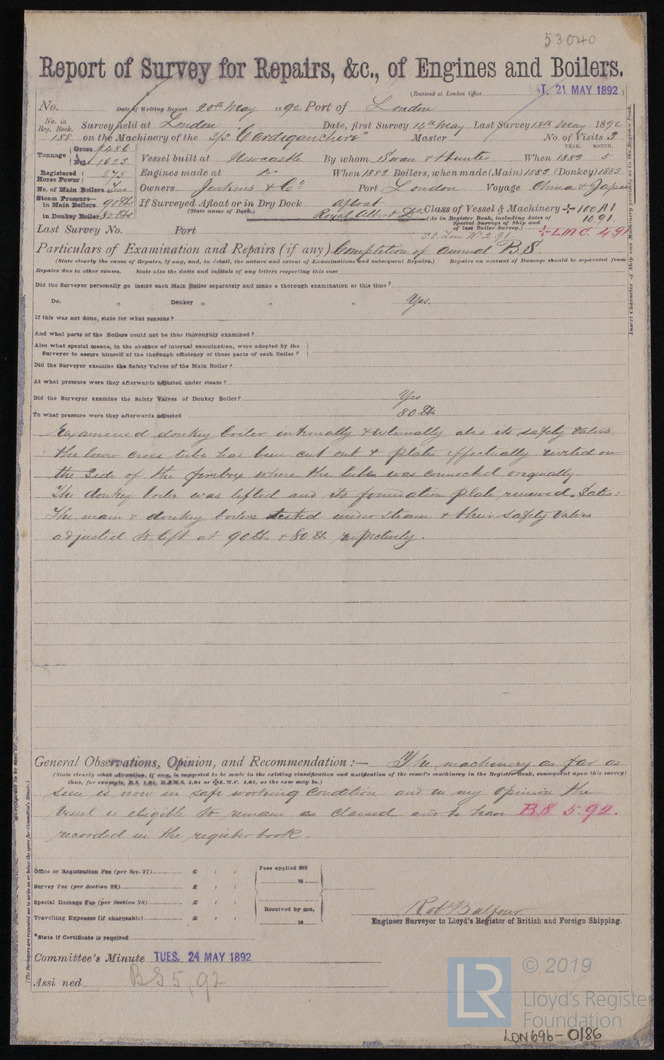 53040
Report of Survey for Repairs, &c., of Engines and Boilers.
(Received at London Office T. 21 MAY 1892
No. Date of Writing Report 20th May 1892 Port of London
No. in Reg. Book. Survey held at London Date, first Survey 14th May Last Survey 18th May 1892
188 on the Machinery of the S/S "Cardiganshire" Master No. of Visits 3
Tonnage Gross 2486 Net 1623 Vessel built at Newcastle By whom Swan & Hunter When 1883 YEAR. MONTH. 5
Registered Horse Power 275 Engines made at Do When 1883 Boilers, when made (Main) 1883 (Donkey) 1883
No. of Main Boilers Two Owners Jenkins & Co Port London Voyage China & Japan
Steam Pressure— in Main Boilers 90 lbs If Surveyed Afloat or in Dry Dock Afloat Class of Vessel & Machinery 100 A1
in Donkey Boiler 80 lbs (State name of Dock.) Royal Albert Dk (As in Register Book, including dates of Special Surveys of Ship and of last Boiler Survey.) 10.91
Last Survey No. Port L.M.C. 4,91
Particulars of Examination and Repairs (if any) Completion of annual B.S.
(State clearly the cause of Repairs, if any, and, in detail, the nature and extent of Examinations and subsequent Repairs.) Repairs on account of Damage should be separated from
Repairs due to other causes. State also the dates and initials of any letters respecting this case
Did the Surveyor personally go inside each Main Boiler separately and make a thorough examination at this time?
Do. " Donkey " " " " Yes.
If this was not done, state for what reasons?
And what parts of the Boilers could not be thus thoroughly examined?
Also what special means, in the absence of internal examination, were adopted by the
Surveyor to assure himself of the thorough efficiency of those parts of each Boiler?
Did the Surveyor examine the Safety Valves of the Main Boiler?
At what pressure were they afterwards adjusted under steam?
Did the Surveyor examine the Safety Valves of Donkey Boiler? Yes
To what pressure were they afterwards adjusted 80 lbs
Examined donkey boiler internally & externally also its safety valves
the lower cross tube has been cut out & plates effectually riveted on
the side of the firebox where the tube was connected originally.
The donkey boiler was lifted and its foundation plate renewed.
The main & donkey boilers tested under steam & their safety valves
adjusted to lift at 90 lbs & 80 lbs respectively.
General Observations, Opinion, and Recommendation:— The machinery as far as
(State clearly what alteration, if any, is suggested to be made in the existing classification and notification of the vessel's machinery in the Register Book, consequent upon this survey;
thus, for example, B.S. 1,91, B.&M.S. 1,91 or L.M.C. 1,91, as the case may be.)
seen is now in safe working condition and in my opinion the
vessel is eligible to remain as classed and to have B.S 5.92.
recorded in the register book.
Office or Registration Fee (per Sec. 27) £ : :
Survey Fee (per Section 28) £ : :
Special Damage Fee (per Section 28) £ : :
Travelling Expenses (if chargeable) £ : :
Fees applied for
18
Received by me,
18
*State if Certificate is required
Rob Balfour
Engineer Surveyor to Lloyd's Register of British and Foreign Shipping.
Committee's Minute TUES. 24 MAY 1892
Assi ned BS 5,92
LR
© 2019
Lloyd's Register
Foundation
LDN696-0186